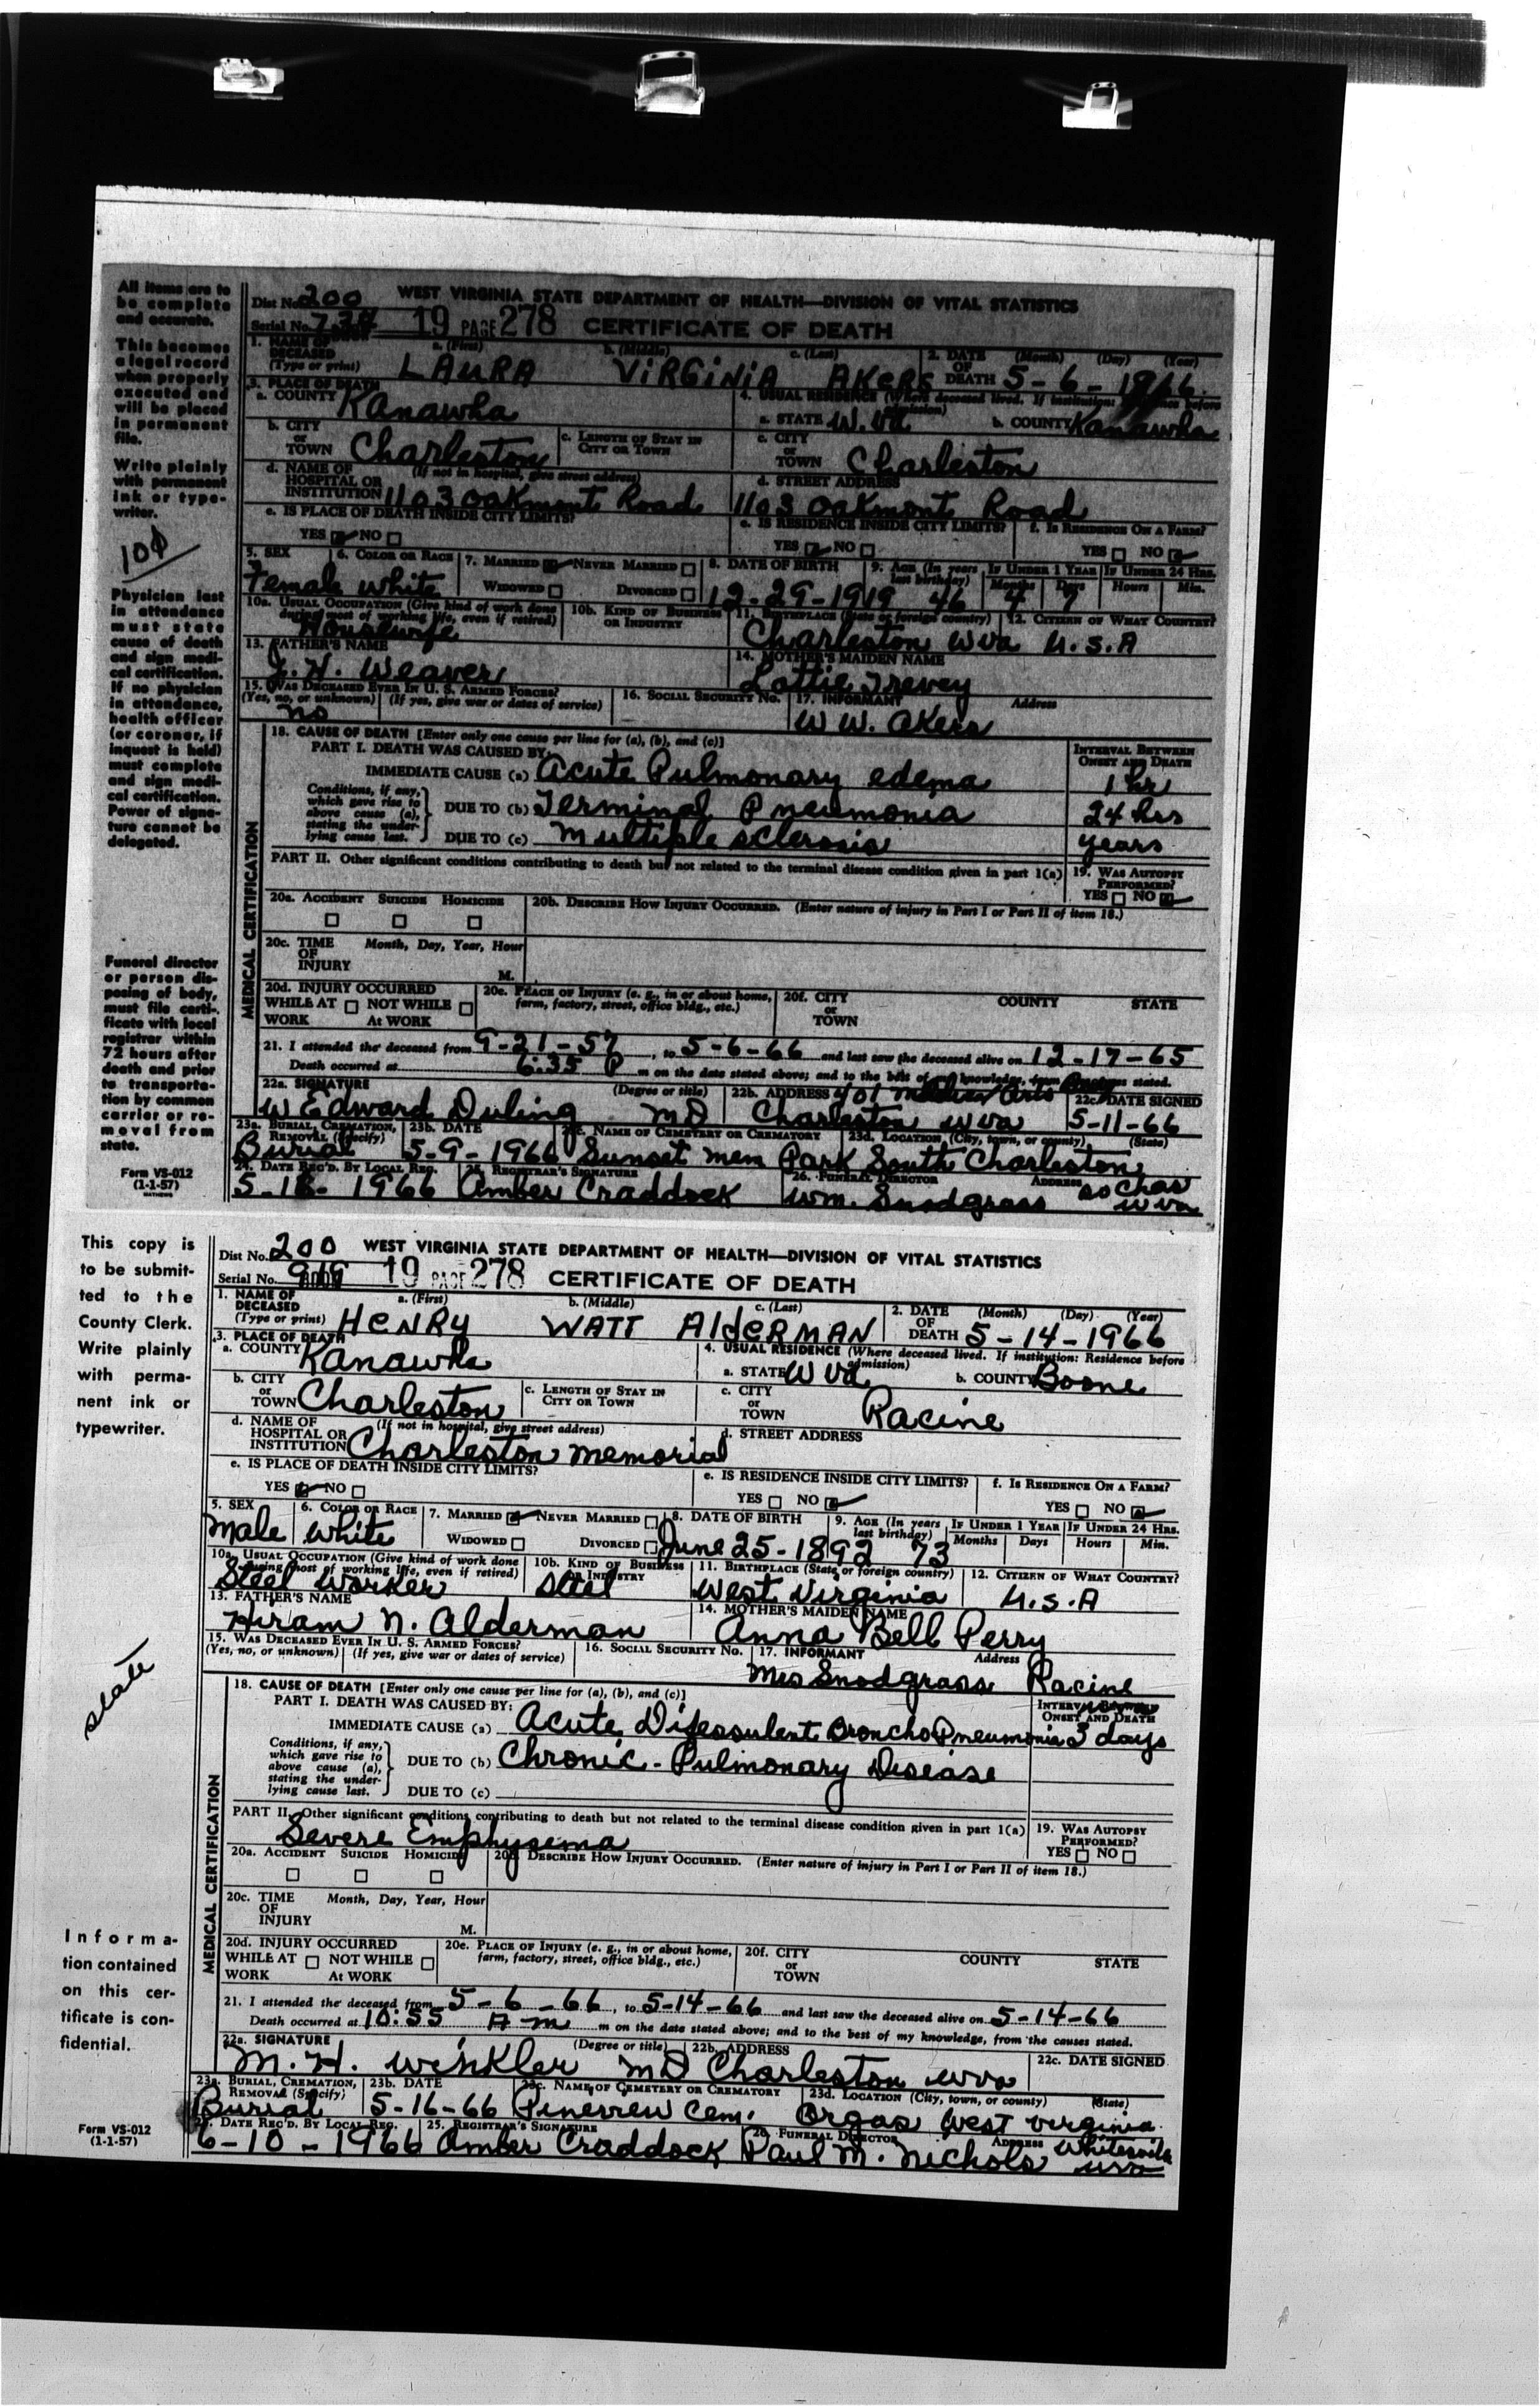 All items are to
be complete
and accurate.
This becomes
a legal record
when properly
executed and
will be placed
in permanent
file.
Write plainly
with permanent
ink or type-
writer.
Physician last
in attendance
must state
cause of death
and sign medi-
cal certification.
If no physician
in attendance,
health officer
(or coroner, if
inquest is held)
must complete
and sign medi-
cal certification.
Power of signa-
ture cannot be
delegated.
Funeral director
or person dis-
posing of body,
must file certi-
ficate with local
registrar within
72 hours after
death and prior
to transporta-
tion by common
carrier or re-
moval from
state.
Form VS-012
(1-1-57)
Dist No. 200 WEST VIRGINIA STATE DEPARTMENT OF HEALTH—DIVISION OF VITAL STATISTICS
Serial No. 19 PAGE 278 CERTIFICATE OF DEATH
1. NAME OF DECEASED (Type or print) a. (First) LAURA b. (Middle) VIRGINIA c. (Last) AKERS 2. DATE OF DEATH (Month) (Day) (Year) 5-6-1966
3. PLACE OF DEATH 4. USUAL RESIDENCE (Where deceased lived. If institution: Residence before admission)
a. COUNTY Kanawha a. STATE W. Va b. COUNTY Kanawha
b. CITY or TOWN Charleston c. LENGTH OF STAY IN CITY OR TOWN c. CITY or TOWN Charleston
d. NAME OF HOSPITAL OR INSTITUTION (If not in hospital, give street address) 1103 Oakmont Road d. STREET ADDRESS 1103 Oakmont Road
e. IS PLACE OF DEATH INSIDE CITY LIMITS? e. IS RESIDENCE INSIDE CITY LIMITS? f. IS RESIDENCE ON A FARM?
YES NO YES NO YES NO
5. SEX 6. COLOR OR RACE 7. MARRIED NEVER MARRIED 8. DATE OF BIRTH 9. AGE (In years last birthday) IF UNDER 1 YEAR IF UNDER 24 HRS.
Female White WIDOWED DIVORCED 12-29-1919 46 Months 4 Days 7 Hours Min.
10a. USUAL OCCUPATION (Give kind of work done during most of working life, even if retired) 10b. KIND OF BUSINESS OR INDUSTRY 11. BIRTHPLACE (State or foreign country) 12. CITIZEN OF WHAT COUNTRY?
Housewife Charleston W Va U.S.A
13. FATHER'S NAME 14. MOTHER'S MAIDEN NAME
J. H. Weaver Lottie Trevey
15. WAS DECEASED EVER IN U. S. ARMED FORCES? 16. SOCIAL SECURITY NO. 17. INFORMANT Address
(Yes, no, or unknown) (If yes, give war or dates of service)
no W W. Akers
18. CAUSE OF DEATH [Enter only one cause per line for (a), (b), and (c)]
PART I. DEATH WAS CAUSED BY: INTERVAL BETWEEN ONSET AND DEATH
IMMEDIATE CAUSE (a) Acute Pulmonary edema 1 hr
Conditions, if any, which gave rise to above cause (a), stating the underlying cause last.
DUE TO (b) Terminal Pneumonia 24 hrs
DUE TO (c) Multiple sclerosis years
PART II. Other significant conditions contributing to death but not related to the terminal disease condition given in part 1(a) 19. WAS AUTOPSY PERFORMED?
YES NO
MEDICAL CERTIFICATION
20a. ACCIDENT SUICIDE HOMICIDE 20b. DESCRIBE HOW INJURY OCCURRED. (Enter nature of injury in Part I or Part II of item 18.)
20c. TIME OF INJURY Month, Day, Year, Hour M.
20d. INJURY OCCURRED 20e. PLACE OF INJURY (e. g., in or about home, farm, factory, street, office bldg., etc.) 20f. CITY or TOWN COUNTY STATE
WHILE AT WORK NOT WHILE At WORK
21. I attended the deceased from 9-21-57, to 5-6-66 and last saw the deceased alive on 12-17-65
Death occurred at 6:35 P m on the date stated above; and to the best of my knowledge, from causes stated.
22a. SIGNATURE (Degree or title) 22b. ADDRESS 401 Medical Arts 22c. DATE SIGNED
W Edward Duling MD Charleston W Va 5-11-66
23a. BURIAL, CREMATION, REMOVAL (Specify) 23b. DATE 23c. NAME OF CEMETERY OR CREMATORY 23d. LOCATION (City, town, or county) (State)
Burial 5-9-1966 Sunset Mem Park South Charleston
24. DATE REC'D. BY LOCAL REG. 25. REGISTRAR'S SIGNATURE 26. FUNERAL DIRECTOR ADDRESS
5-18-1966 Amber Craddock Wm. Snodgrass So Chas W Va
This copy is
to be submit-
ted to the
County Clerk.
Write plainly
with perma-
nent ink or
typewriter.
state
Informa-
tion contained
on this cer-
tificate is con-
fidential.
Form VS-012
(1-1-57)
Dist No. 200 WEST VIRGINIA STATE DEPARTMENT OF HEALTH—DIVISION OF VITAL STATISTICS
Serial No. 19 PAGE 278 CERTIFICATE OF DEATH
1. NAME OF DECEASED (Type or print) a. (First) HENRY b. (Middle) WATT c. (Last) AldERMAN 2. DATE OF DEATH (Month) (Day) (Year) 5-14-1966
3. PLACE OF DEATH 4. USUAL RESIDENCE (Where deceased lived. If institution: Residence before admission)
a. COUNTY Kanawha a. STATE W Va b. COUNTY Boone
b. CITY or TOWN Charleston c. LENGTH OF STAY IN CITY OR TOWN c. CITY or TOWN Racine
d. NAME OF HOSPITAL OR INSTITUTION (If not in hospital, give street address) Charleston Memorial d. STREET ADDRESS
e. IS PLACE OF DEATH INSIDE CITY LIMITS? e. IS RESIDENCE INSIDE CITY LIMITS? f. IS RESIDENCE ON A FARM?
YES NO YES NO YES NO
5. SEX 6. COLOR OR RACE 7. MARRIED NEVER MARRIED 8. DATE OF BIRTH 9. AGE (In years last birthday) IF UNDER 1 YEAR IF UNDER 24 HRS.
Male White WIDOWED DIVORCED June 25-1892 73 Months Days Hours Min.
10a. USUAL OCCUPATION (Give kind of work done during most of working life, even if retired) 10b. KIND OF BUSINESS OR INDUSTRY 11. BIRTHPLACE (State or foreign country) 12. CITIZEN OF WHAT COUNTRY?
Steel Worker Steel West Virginia U.S.A
13. FATHER'S NAME 14. MOTHER'S MAIDEN NAME
Hiram N. Alderman Anna Bell Perry
15. WAS DECEASED EVER IN U. S. ARMED FORCES? 16. SOCIAL SECURITY NO. 17. INFORMANT Address
(Yes, no, or unknown) (If yes, give war or dates of service)
Mrs Snodgrass Racine
18. CAUSE OF DEATH [Enter only one cause per line for (a), (b), and (c)]
PART I. DEATH WAS CAUSED BY: INTERVAL BETWEEN ONSET AND DEATH
IMMEDIATE CAUSE (a) Acute BronchoPneumonia 3 days
Conditions, if any, which gave rise to above cause (a), stating the underlying cause last.
DUE TO (b) Chronic - Pulmonary Disease
DUE TO (c)
PART II. Other significant conditions contributing to death but not related to the terminal disease condition given in part 1(a) 19. WAS AUTOPSY PERFORMED?
Severe Emphysema YES NO
MEDICAL CERTIFICATION
20a. ACCIDENT SUICIDE HOMICIDE 20b. DESCRIBE HOW INJURY OCCURRED. (Enter nature of injury in Part I or Part II of item 18.)
20c. TIME OF INJURY Month, Day, Year, Hour M.
20d. INJURY OCCURRED 20e. PLACE OF INJURY (e. g., in or about home, farm, factory, street, office bldg., etc.) 20f. CITY or TOWN COUNTY STATE
WHILE AT WORK NOT WHILE At WORK
21. I attended the deceased from 5-6-66, to 5-14-66 and last saw the deceased alive on 5-14-66
Death occurred at 10:55 A m m on the date stated above; and to the best of my knowledge, from the causes stated.
22a. SIGNATURE (Degree or title) 22b. ADDRESS 22c. DATE SIGNED
M. H. Winkler MD Charleston W Va
23a. BURIAL, CREMATION, REMOVAL (Specify) 23b. DATE 23c. NAME OF CEMETERY OR CREMATORY 23d. LOCATION (City, town, or county) (State)
Burial 5-16-66 Pineview Cem. Orgas West Virginia
24. DATE REC'D. BY LOCAL REG. 25. REGISTRAR'S SIGNATURE 26. FUNERAL DIRECTOR ADDRESS
6-10-1966 Amber Craddock Paul M. Nichols Whitesville W Va